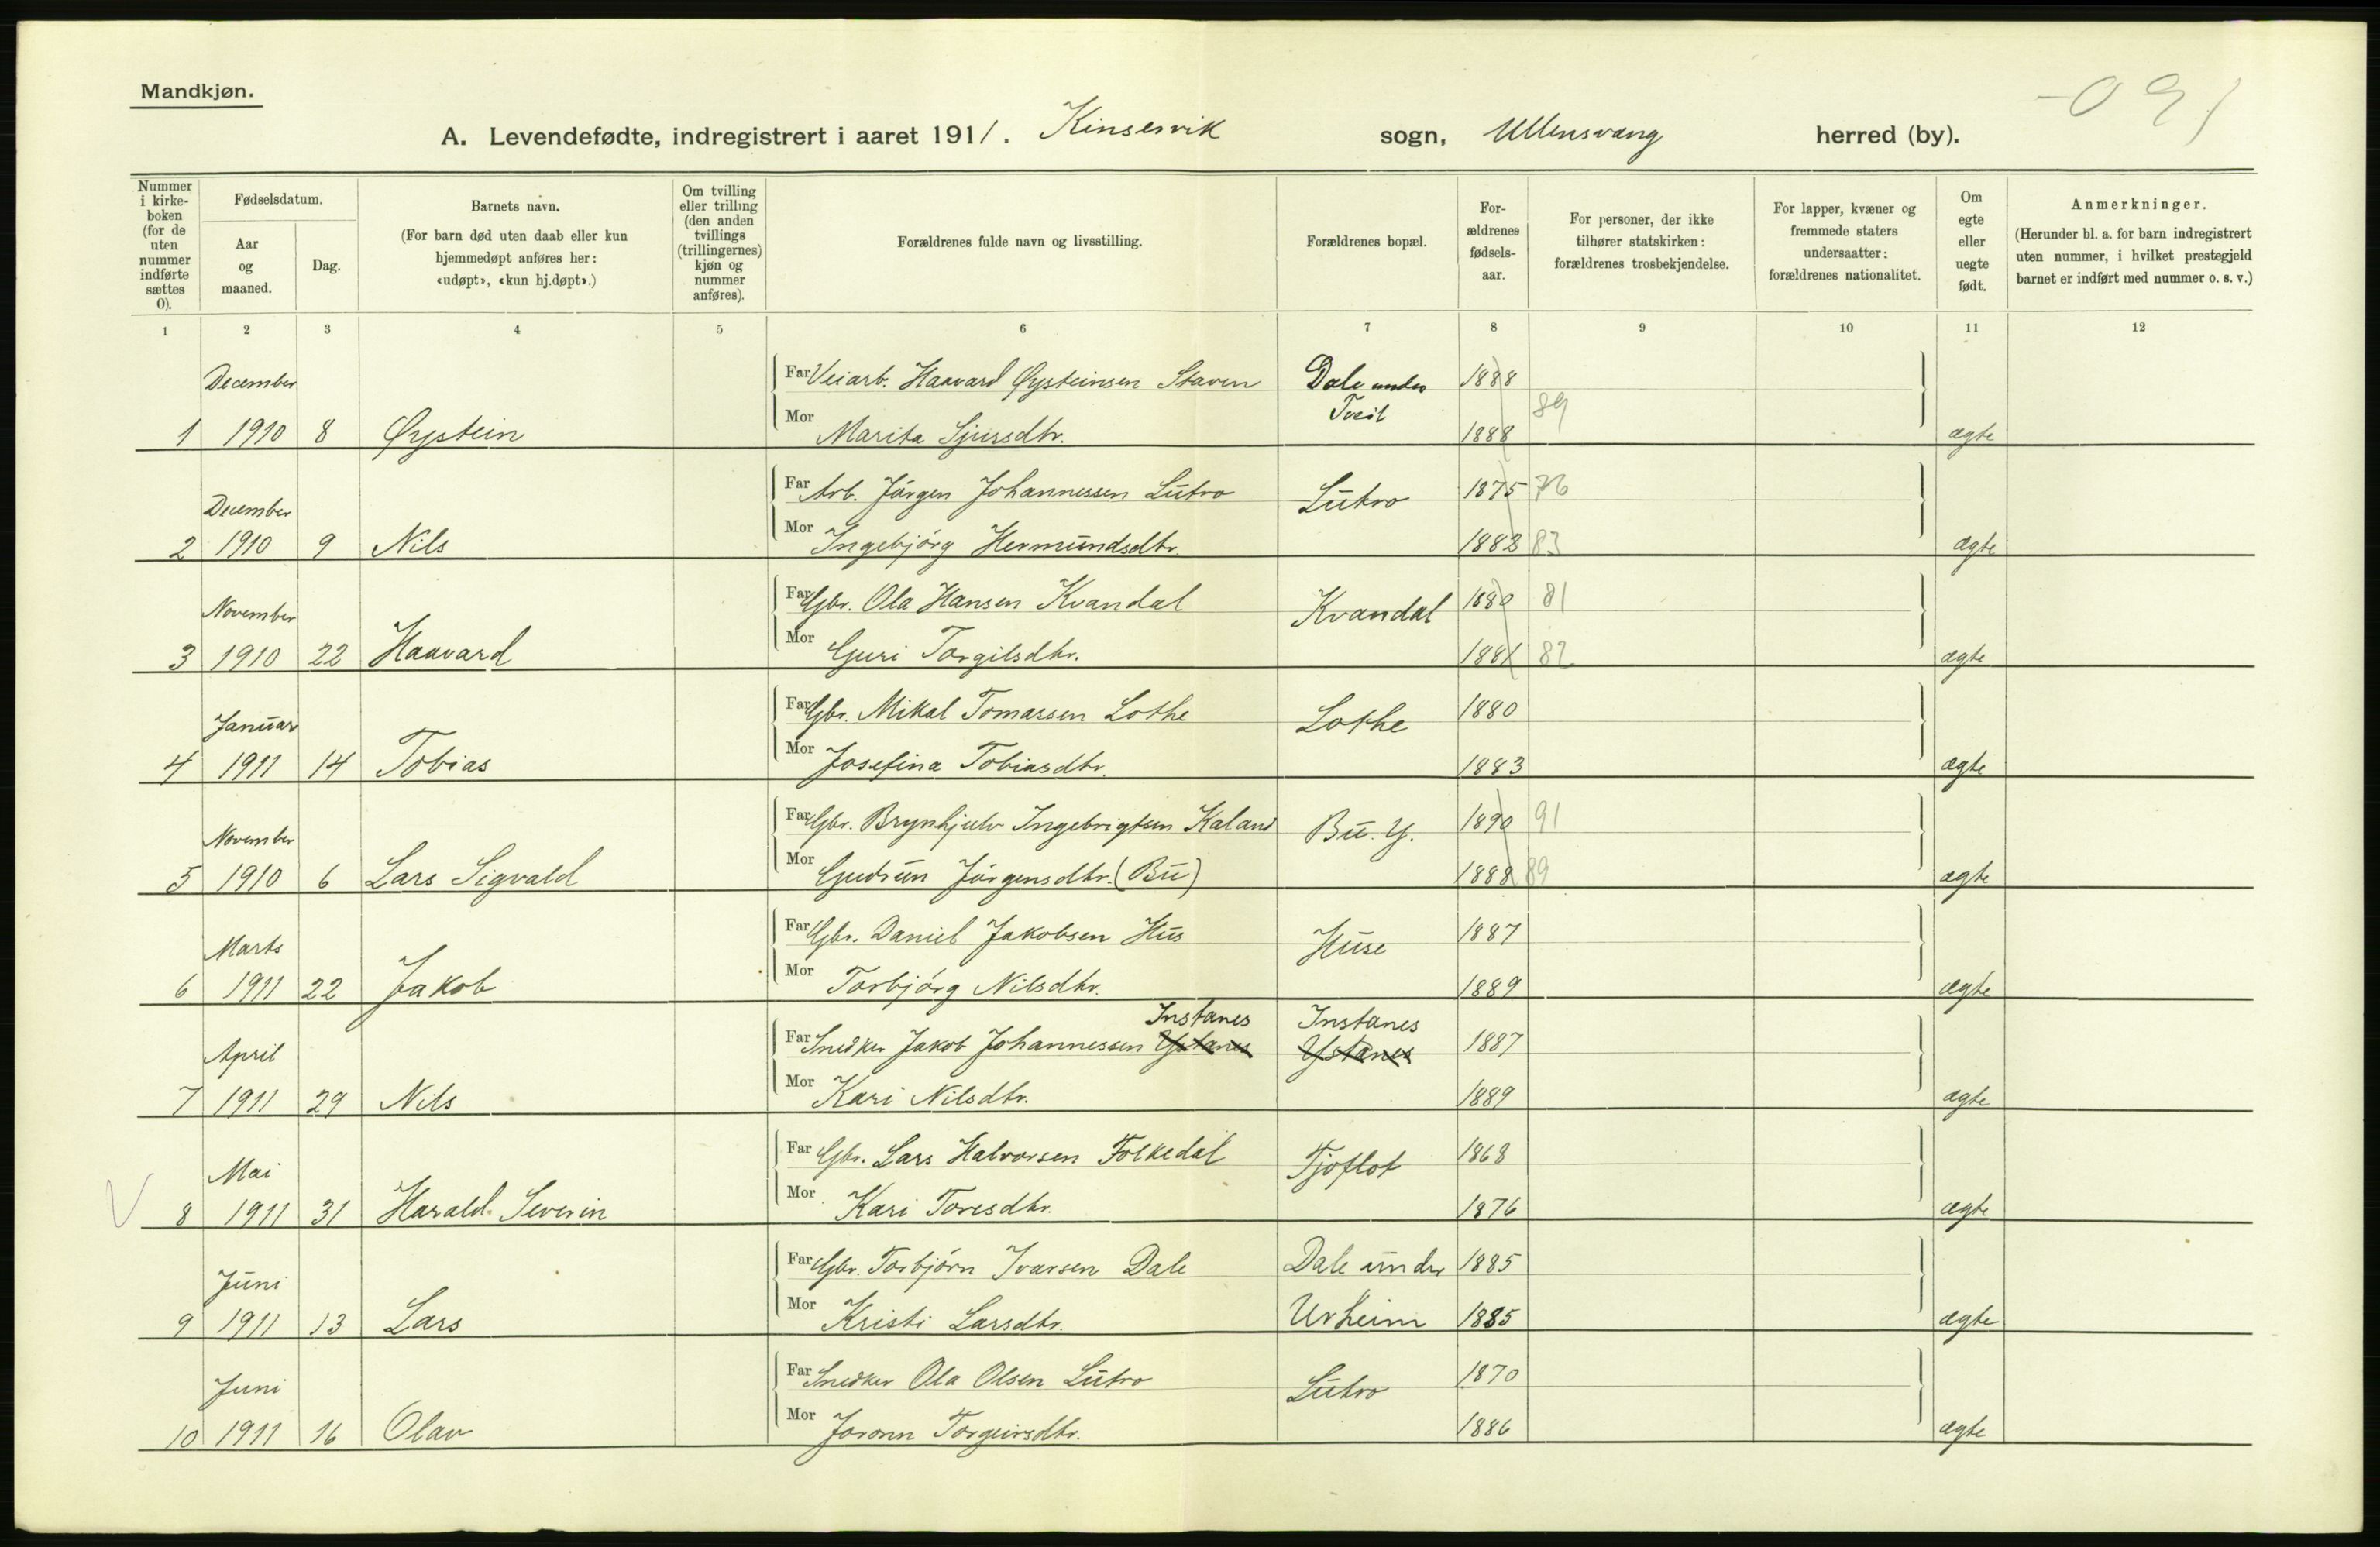 Mandkjøn.
-091
A. Levendefødte, indregistrert i aaret 1911. Kinservik sogn, Ullensvang herred (by).
Nummer i kirke-boken (for de uten nummer indførte sættes 0).
Fødselsdatum.
Aar og maaned.
Dag.
Barnets navn.
(For barn død uten daab eller kun hjemmedøpt anføres her: «udøpt», «kun hj.døpt».)
Om tvilling eller trilling (den anden tvillings (trillingernes) kjøn og nummer anføres).
Forældrenes fulde navn og livsstilling.
Forældrenes bopæl.
For-ældrenes fødsels-aar.
For personer, der ikke tilhører statskirken: forældrenes trosbekjendelse.
For lapper, kvæner og fremmede staters undersaatter: forældrenes nationalitet.
Om egte eller uegte født.
Anmerkninger.
(Herunder bl. a. for barn indregistrert uten nummer, i hvilket prestegjeld barnet er indført med nummer o. s. v.)
1 2 3 4 5 6 7 8 9 10 11 12
December Far Veiarb. Haavard Øysteinsen Staven Dale under 1888
Tveit 89
1 1910 8 Øystein Mor Marita Sjursdtr. 1888 ægte
December Far Arb. Jörgen Johannessen Lutro Lutro 1875 76
2 1910 9 Nils Mor Ingebjörg Hermundsdtr. 1882 83 ægte
November Far Gbr. Ola Hansen Kvandal Kvandal 1880 81
3 1910 22 Haavard Mor Guri Torgilsdtr. 1881 82 ægte
Januar Far Gbr. Mikal Tomassen Lothe Lothe 1880
4 1911 14 Tobias Mor Josefina Tobiasdtr. 1883 ægte
November Far Gbr. Brynhjulv Ingebrigtsen Kaland Bu. Y. 1890 91
5 1910 6 Lars Sigvald Mor Gudrun Jörgensdtr. (Bu) 1888 89 ægte
Marts Far Gbr. Daniel Jakobsen Hus Huse 1887
6 1911 22 Jakob Mor Torbjörg Nilsdtr. 1889 ægte
Instanes Instanes
April Far Snedker Jakob Johannessen Ystanes Ystanes 1887
7 1911 29 Nils Mor Kari Nilsdtr. 1889 ægte
Mai Far Gbr. Lars Halvorsen Folkedal Tjoflot 1868
V 8 1911 31 Harald Severin Mor Kari Toresdtr. 1876 ægte
Juni Far Gbr. Torbjörn Ivarsen Dale Dale under 1885
9 1911 13 Lars Mor Kristi Larsdtr. Urheim 1885 ægte
Juni Far Snedker Ola Olsen Lutro Lutro 1870
10 1911 16 Olav Mor Joronn Torgeirsdtr. 1886 ægte